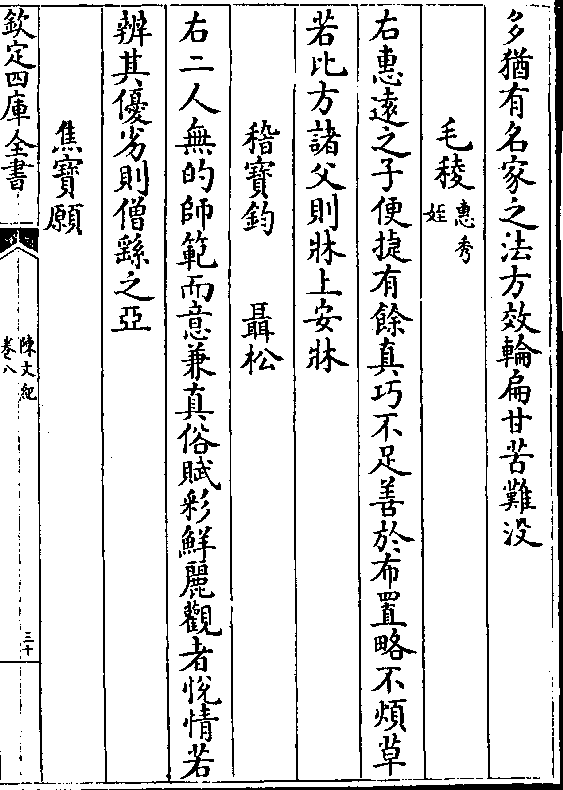 多猶有名家之法方效輪扁甘苦難没
毛稜惠秀姪
右惠遠之子便捷有餘真巧不足善於布置略不煩草
若比方諸父則牀上安牀
嵇寶鈞 聶松
右二人無的師範而意兼真俗賦彩鮮麗觀者悅情若
辨其優劣則僧繇之亞
焦寶願
欽定四庫全書
陳文紀
卷八
三十